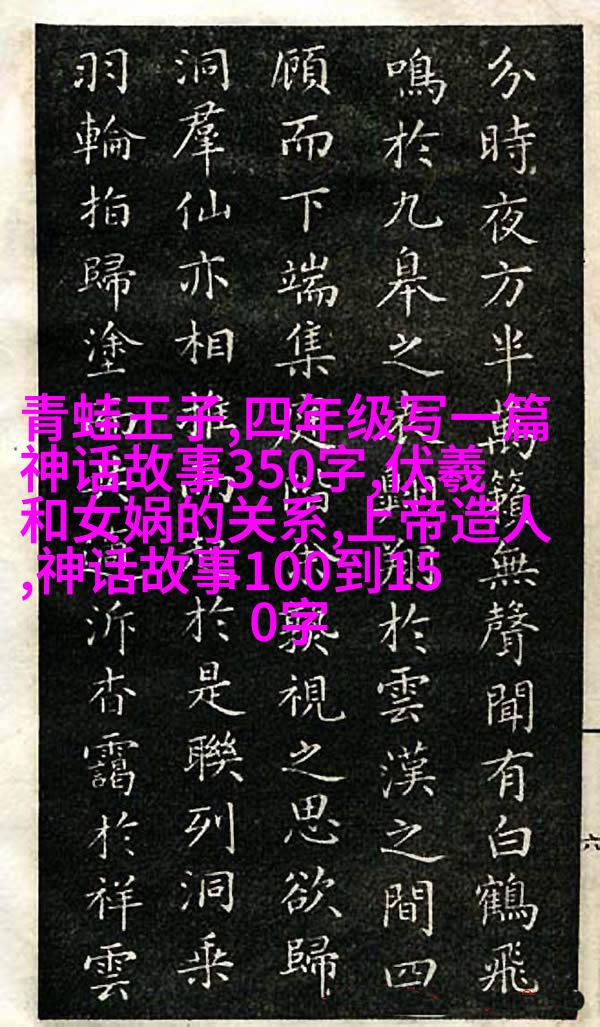 青蛙王子,四年级写一篇
神话故事350字,伏羲
和女娲的关系,上帝造人
,神话故事100到15
0字
分時夜方半萬籟無聲聞有白鶴飛
鳴於九皋之表翔於雲漢之間四
顧而下端集庭階視之思欲歸
洞羣仙亦相推於是聯列洞乘
羽輪拍歸塗泝杳靄於祥雲
六